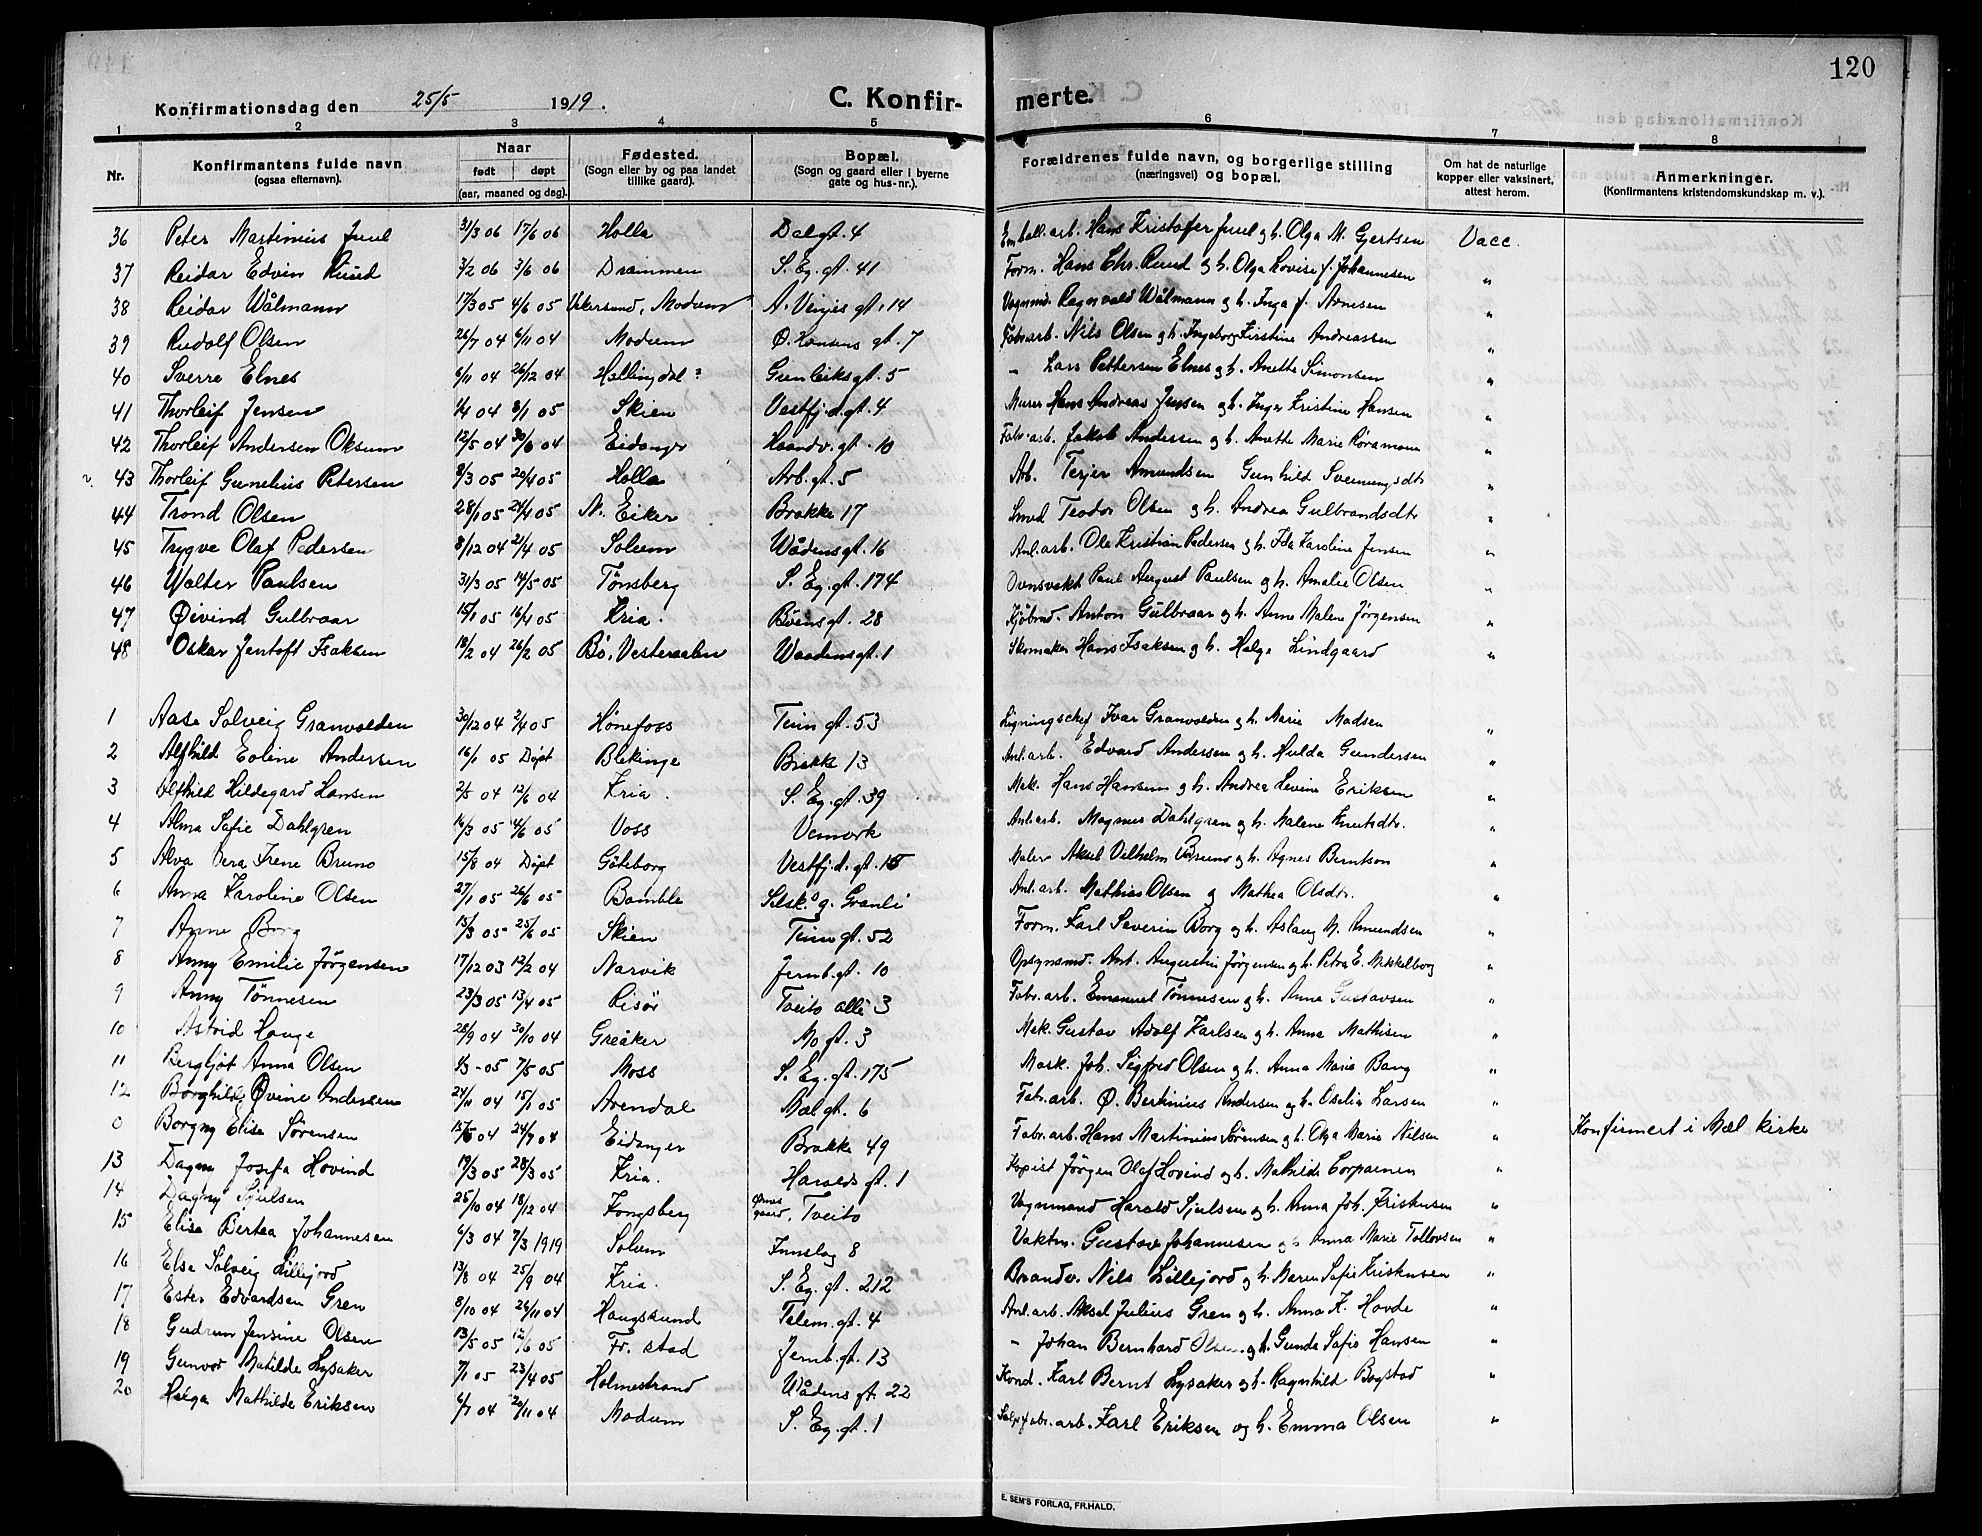 120
Konfirmationsdag den 25/5 1919. C. Konfirmerte.
1 2 3 4 5 6 7 8
Nr. Konfirmantens fulde navn (ogsaa efternavn). Naar født døpt (aar, maaned og dag). Fødested. (Sogn eller by og paa landet tillike gaard). Bopæl. (Sogn og gaard eller i byerne gate og hus-nr.). Forældrenes fulde navn, og borgerlige stilling (næringsvei) og bopæl. Om hat de naturlige kopper eller vaksinert, attest herom. Anmerkninger. (Konfirmantens kristendomskundskap m. v.).
36 Peter Martinius Juul 31/3 06 17/6 06 Holla Dalgt. 4 Emball. arb. Hans Kristofer Juul og h. Olga M. Gjertsen Vacc.
37 Reidar Edvin Ruud 3/2 06 3/6 06 Drammen S. Eg. gt. 41 Form. Hans Chr. Ruud og h. Olga Lovise f. Johannesen "
38 Reidar Wålmann 17/3 05 4/6 05 Vikersund, Modum A. Vinjes gt. 14 Vognmd. Ragnvald Wålmann og h. Inga f. Arnesen "
39 Rudolf Olsen 26/7 04 6/11 04 Modum Ø. Hansens gt. 7 Fabr. arb. Nils Olsen og h. Ingeborg Kirstine Andreassen "
40 Sverre Elnes 6/11 04 26/12 04 Hallingdal ? Gunleiksgt. 5 - Lars Pettersen Elnes og h. Anette Simonsen "
41 Thorleif Jensen 1/4 04 8/1 05 Skien Vestfj.d.gt. 4 Murer Hans Andreas Jensen og h. Inger Kristine Hansen "
42 Thorleif Andersen Oksum 12/5 04 30/6 04 Eidanger Haandv. gt. 10 Fabr. arb. Jakob Andersen og h. Anette Marie Røramann "
43 Thorleif Gunelius Petersen 8/3 05 20/4 05 Holla Arb. gt. 5 Arb. Terjer Amundsen Gunhild Sveinungsdtr "
44 Trond Olsen 28/1 05 24/4 05 N. Eiker Brakke 17 Smed Teodor Olsen og h. Andrea Gulbrandsdtr "
45 Trygve Olaf Pedersen 8/12 04 21/4 05 Solum Wådens gt. 16 Anl. arb. Ole Kristian Pedersen og h. Ida Karoline Jensen "
46 Walter Paulsen 31/3 05 14/5 05 Tønsberg S. Eg. gt. 174 Ovnsvakt Paul August Paulsen og h. Amalie Olsen "
47 Øivind Gulbraar 15/1 05 16/4 05 Kria. Bøens gt. 28 Kjøbmd. Anton Gulbraar og h. Anne Malene Jørgensen "
48 Oskar Jentoft Isaksen 18/2 04 26/2 05 Bø, Vesteraalen Waadens gt. 1 Skomaker Hans Isaksen og h. Helga Lindgaard "
1 Aase Solveig Granvolden 30/12 04 2/4 05 Hønefoss Tinn gt. 53 Ligningschef Ivar Granvolden og h. Marie Madsen "
2 Alfhild Eoline Andersen 16/1 05 Døpt Blekinge Brakke 13 Anl. arb. Edvard Andersen og h. Hulda Gundersen "
3 Alfhild Hildegard Hansen 2/5 04 12/6 04 Kria. S. Eg. gt. 39 Mek. Hans Hansen og h. Andrea Levine Eriksen "
4 Alma Sofie Dahlgren 16/3 05 4/6 05 Voss Vemork Anl. arb. Magnus Dahlgren og h. Malene Knutsdtr. "
5 Alva Vera Irene Bruno 15/8 04 Døpt Göteborg Vestfj.d. gt. 15 Maler Aksel Vilhelm Bruno og h. Agnes Berntson "
6 Anna Karoline Olsen 27/1 05 26/6 05 Bamble Selsk. g. Granli Anl. arb. Mathias Olsen og Mathea Olsdtr. "
7 Anne Borg 15/3 05 25/6 05 Skien Tinn gt. 52 Form. Karl Severin Borg og h. Aslaug M. Amundsen "
8 Anny Emilie Jørgensen 17/12 03 12/2 04 Narvik Jernb. gt. 10 Opsynsmd. Ant. Augustin Jørgensen og h. Petra E. Mikkelborg "
9 Anny Tønnesen 23/3 05 13/4 05 Risør Tveito allé 3 Fabr. arb. Emanuel Tønnesen og h. Anna Gustavsen "
10 Astrid Hauge 28/9 04 30/10 04 Greåker Mo gt. 3 Mek. Gustav Adolf Karlsen og h. Anna Mathisen "
11 Bergljot Anna Olsen 1/3 - 05 7/5 05 Moss S. Eg. gt. 175 Mask. Joh. Sigfred Olsen og h. Anna Marie Bang "
12 Borghild Øvine Andersen 24/11 04 15/1 05 Arendal Mæl gt. 6 Fabr. arb. Ø. Berkinius Andersen og h. Oselia Larsen "
0 Borgny Elise Sørensen 15/5 04 24/7 04 Eidanger Brakke 49 Fabr. arb. Hans Martinius Sørensen og h. Olga Marie Nilsen " Konfirmert i Mæl kirke
13 Dagny Josefa Hovind 19/3 05 28/3 05 Kria. Haralds gt. 1 Kopist Jørgen Olaf Hovind og h. Mathilde Torparinen "
14 Dagny Sjulsen 25/10 04 18/12 04 Kongsberg Ørnes gaard, Tveito Vognmand Harald Sjulsen og h. Anna Joh. Kristensen "
15 Elise Bertea Johannesen 6/3 04 7/3 1919 Solum Innslag 8 Vaktm. Gustav Johannesen og h. Anna Marie Tollovsen "
16 Else Solveig Lillejord 13/8 04 25/9 04 Kria. S. Eg. gt. 212 Brandv. Nils Lillejord og h. Maren Sofie Kristensen "
17 Ester Edvardsen Gren 8/10 04 26/11 04 Haugsund Telem. gt. 4 Anl. arb. Aksel Julius Gren og h. Anna K. Hovde "
18 Gudrun Jensine Olsen 13/5 05 12/6 05 Fr. stad Jernb. gt. 13 - Johan Bernhard Olsen og h. Gunda Sofie Hansen "
19 Gunvor Matilde Lysaker 7/1 05 23/4 05 Holmestrand Wådens gt. 22 Kond. Karl Bernt Lysaker og h. Ragnhild Bogstad "
20 Helga Mathilde Eriksen 4/7 04 20/11 04 Modum S. Eg. gt. 1 Salp. fabr. arb. Karl Eriksen og h. Emma Olsen "
E. SEM'S FORLAG, FR.HALD.